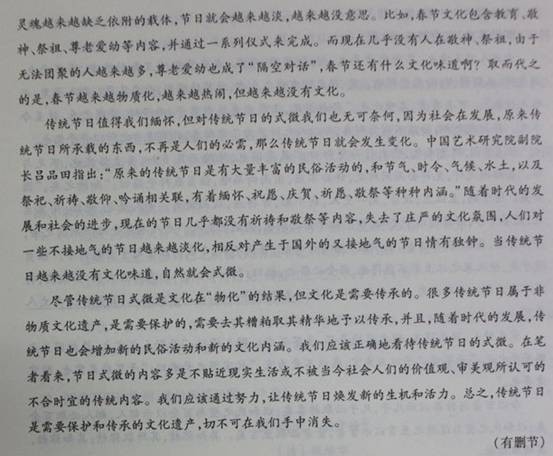 灵魂越来越缺乏依附的载体,节日就会越来越淡,越来越没意思。比如,春节文化包含教育、敬
神、祭祖、尊老爱幼等内容,并通过一系列仪式来完成。而现在几乎没有人在敬神、祭祖,由于
无法团聚的人越来越多,尊老爱幼也成了“隔空对话”,春节还有什么文化味道啊?取而代之
的是,春节越来越物质化,越来越热闹,但越来越没有文化。
传统节日值得我们缅怀,但对传统节日的式微我们也无可奈何,因为社会在发展,原来传
统节日所承载的东西,不再是人们的必需,那么传统节日就会发生变化。中国艺术研究院副院
长吕品田指出:“原来的传统节日是有大量丰富的民俗活动的,和节气、时令、气候、水土,以及
祭祀、祈祷、敬仰、吟诵相关联,有着缅怀、祝愿、庆贺、祈愿、敬祭等种种内涵。”随着时代的发
展和社会的进步,现在的节日几乎都没有祈祷和敬祭等内容,失去了庄严的文化氛围,人们对
一些不接地气的节日越来越淡化,相反对产生于国外的又接地气的节日情有独钟。当传统节
日越来越没有文化味道,自然就会式微。
尽管传统节日式微是文化在“物化”的结果,但文化是需要传承的。很多传统节日属于非
物质文化遗产,是需要保护的,需要去其糟粕取其精华地予以传承,并且,随着时代的发展,传
统节日也会增加新的民俗活动和新的文化内涵。我们应该正确地看待传统节日的式微。在笔
者看来,节日式微的内容多是不贴近现实生活或不被当今社会人们的价值观、审美观所认可的
不合时宜的传统内容。我们应该通过努力,让传统节日焕发新的生机和活力。总之,传统节日
是需要保护和传承的文化遗产,切不可在我们手中消失。
(有删节)